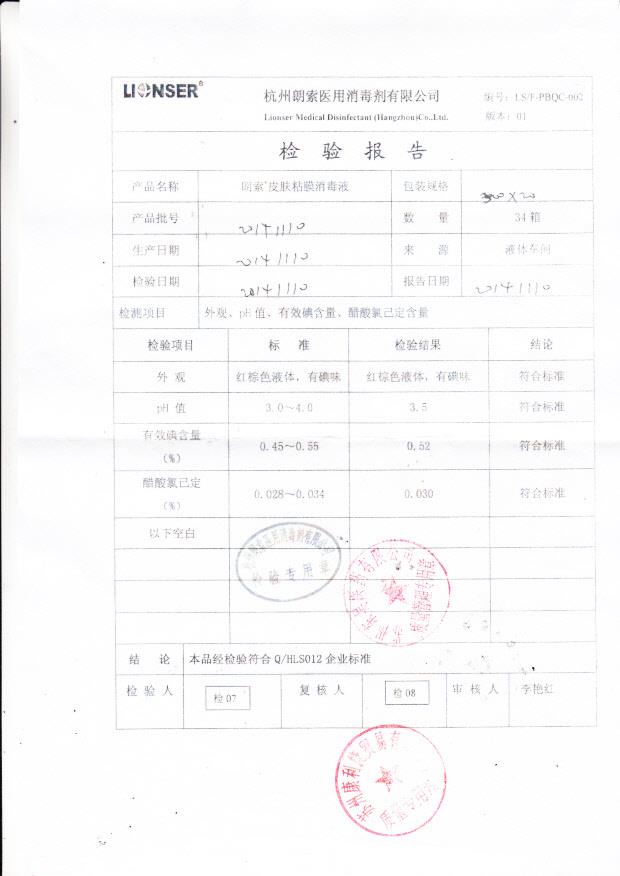 LIONSER®
杭州朗索医用消毒剂有限公司
编号: LS/F-PBQC-002
Lionser Medical Disinfectant (Hangzhou)Co.,Ltd.
版本: 01
检 验 报 告
产品名称 朗索®皮肤粘膜消毒液 包装规格
产品批号 20141110 数 量 34箱
生产日期 20141110 来 源 液体车间
检验日期 20141110 报告日期 20141110
检测项目 外观、pH值、有效碘含量、醋酸氯己定含量
检验项目 标 准 检验结果 结论
外 观 红棕色液体，有碘味 红棕色液体，有碘味 符合标准
pH 值 3.0～4.0 3.5 符合标准
有效碘含量（%） 0.45～0.55 0.52 符合标准
醋酸氯己定（%） 0.028～0.034 0.030 符合标准
以下空白
检验专用章
结 论 本品经检验符合 Q/HLS012 企业标准
检 验 人 检 07 复 核 人 检 08 审 核 人 李艳红